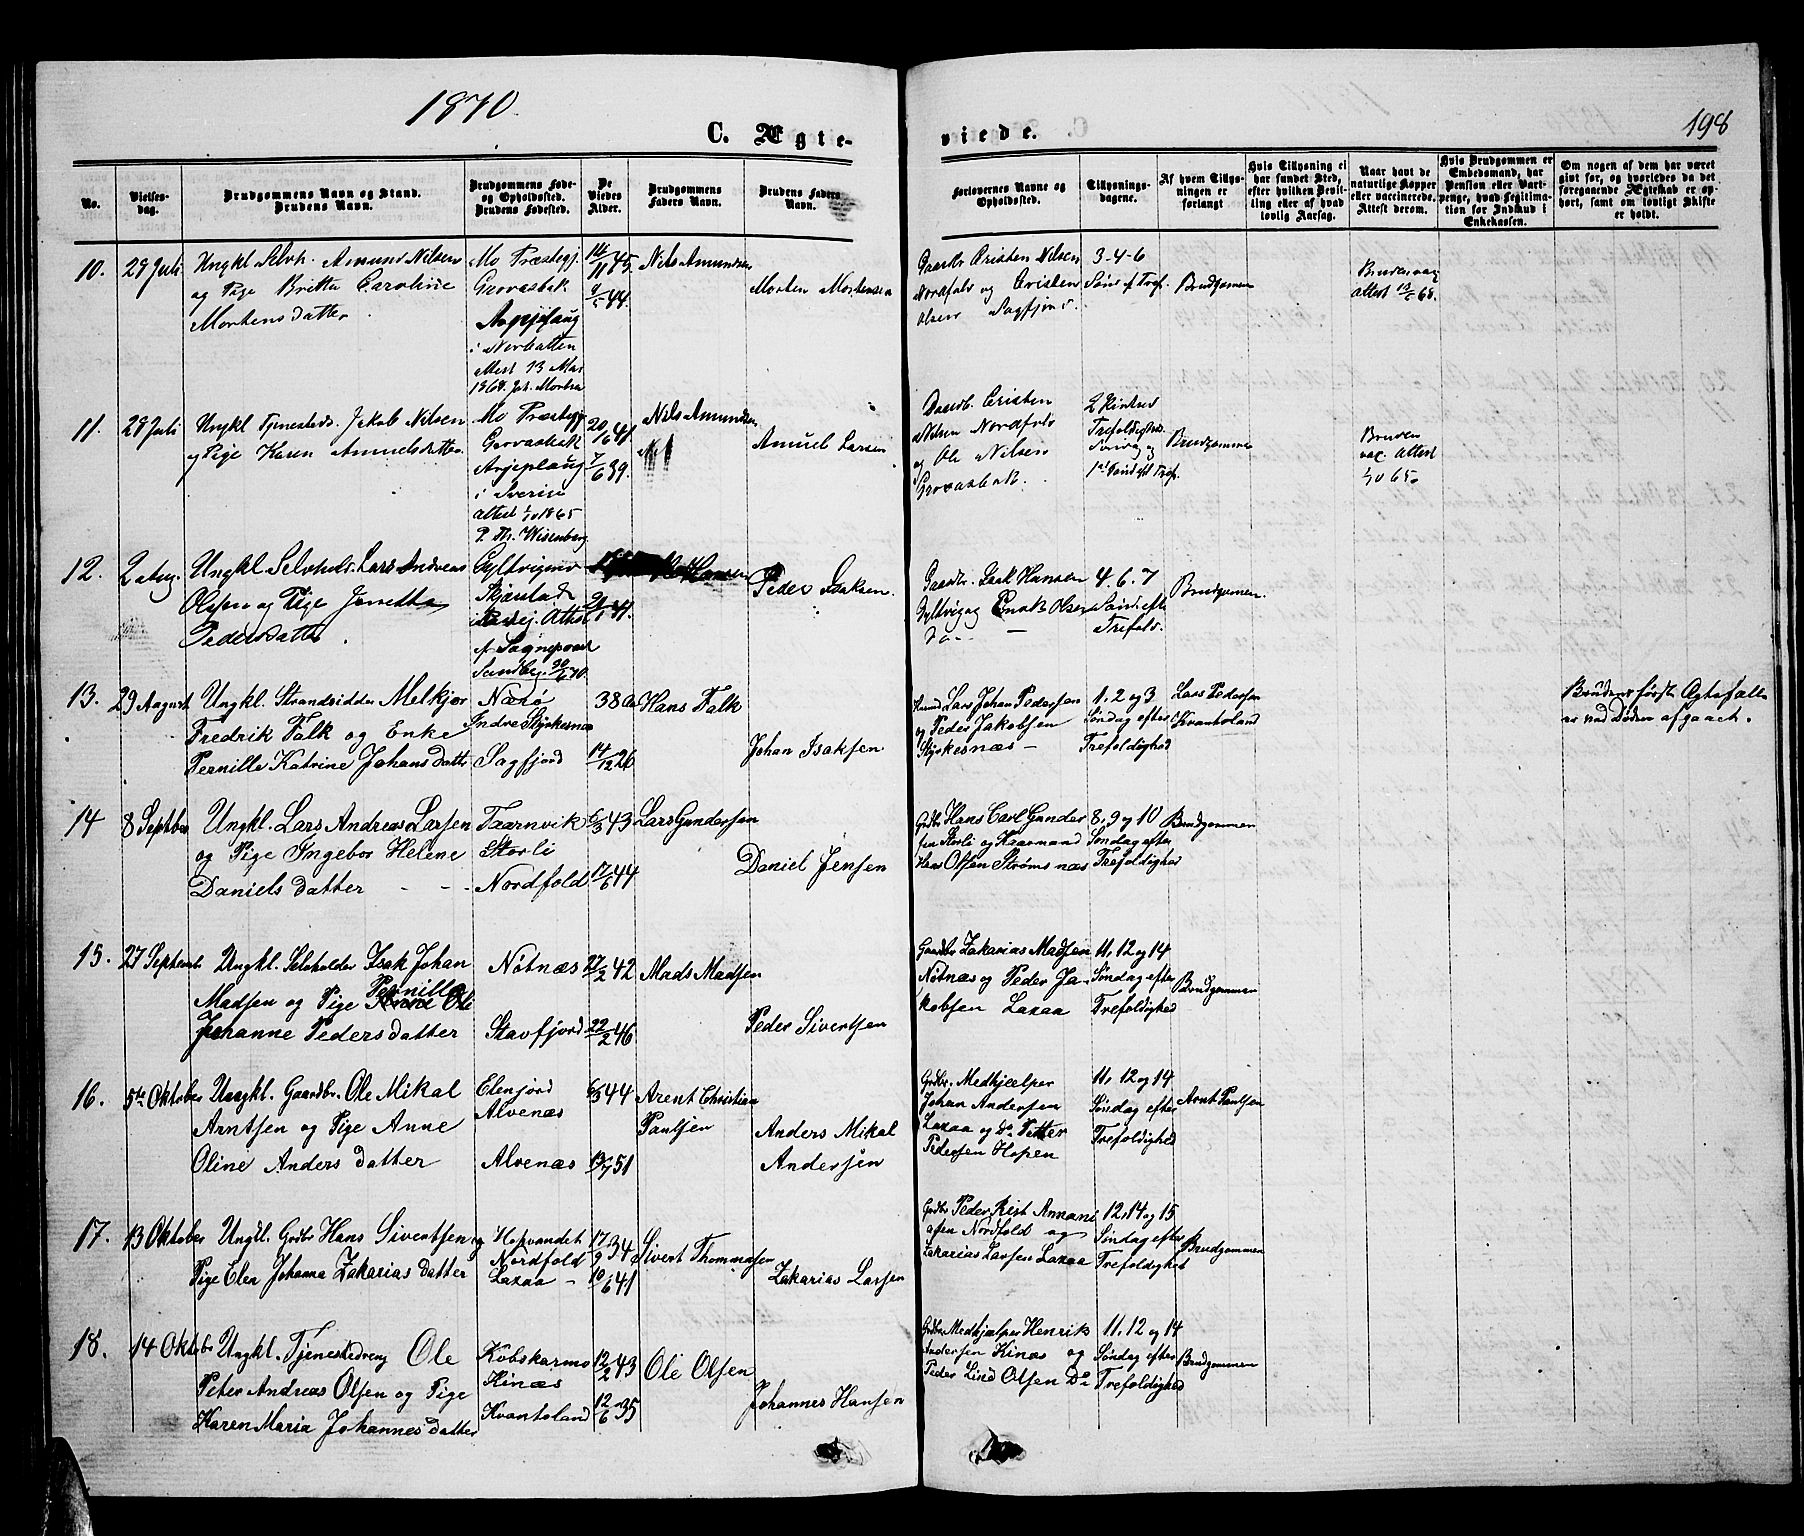 1870.
198
C. Ægte-
viede.
No.
Vielses-
dag.
Brudgommens Navn og Stand.
Brudens Navn.
Brudgommens Føde-
og Opholdssted.
Brudens Fødested.
De
Viedes
Alder.
Brudgommens
Faders Navn.
Brudens Faders
Navn.
Forlovernes Navne og
Opholdssted.
Tillysnings-
dagene.
Af hvem Tillys-
ningen er
forlangt
Hvis Tillysning ei
har fundet Sted,
efter hvilken Bevil-
ling eller af hvad
lovlig Aarsag.
Naar havt de
naturlige Kopper
eller vaccinerede.
Attest derom.
Hvis Brudgommen er
Embedsmand, har
Pension eller Vart-
penge, hvad Legitima-
tion for Indskud i
Enkekassen.
Om nogen af dem har været
gift før, og hvorledes da det
foregaaende Ægteskab er op-
hørt, samt om lovligt Skifte
er holdt.
10.
28 Juli
Ungkl Selvh. Amund Nilsen
og Pige Britta Caroline
Mortensdatter.
Mo Præstegj.
Grovasbak
Arjepluug
i Norbatten
Attest 13 Mai
1868.
14/11 45.
9/5 44.
Nils Amundsen
Morten Mortensen
Gaardbr Cristen Nilsen
Nordfold og Cristen
Olsen Sagfjord.
3-4-6
Sønd. ef Tref.
Brudgomen
Bruden vac
attest 68.
11.
28 Juli
Ungkl Tjenesteds. Jakob Nilsen
og Pige Karen Amuelsdatter
Mo Præstegj
Grovasbak
Arjeplaug
i Sverige
attest 1/10 1865
P. Th. Wisenberg
20/6 41
7/6 39.
Nils Amundsen
Amuel Larsen
Gaardb. Cristen
Nilsen Nordfold
og Ole Nilsen
Grovasbak.
Trefoldigheds
1st Sønd eft Tref.
Brudgommen
Bruden
vac. Attest
1/10 65.
12.
2 Aug.
Ungkl Selvhold. Lars Andreas
Olsen og Pige Jonetta
Pedersdatter.
Gyltvigmo
Skjærstad
Attest
f. Sognepræst
Sundby. 30/6 70.
21/1 41.
Hansen
Peder Isaksen.
Gaardbr. Isak Hansen
Gyltvig og Enok Olsen
Do - -
4. 6. 7
Sønd. efter
Trefold.
Brudgomen.
13.
29 August
Ungkl. Strandsidder Melkjor
Fredrik Falk og Enke
Pernille Katrine Johansdatter
Nærø
Indre Styrkesnæs
Sagfjord
38 Aar
14/12 26
Hans Falk
Johan Isaksen
Husmd Lars Johan Pedersen
og Peder Jakobsen
Styrkesnæs -
1, 2 og 3
Søndag efter
Trefoldighed
Lars Pedersen
Kvantoland
Brudens første Ægtefælle
er ved Døden afgaaet.
14
8 Septber
Ungkl. Lars Andreas Larsen
og Pige Ingebor Helene
Danielsdatter - -
Taarnvik
Storli
Nordfold
6/3 43
17/6 44
Lars Gundersen
Daniel Jensen
Grdbr Hans Carl Gunder
sen Storli og Kaarmand
Hans Olsen Strømsnæs
8, 9 og 10
Søndag efter
Trefoldighed
Brudgommen
15.
27 Septemb
Ungkl. Selvholder Isak Johan
Madsen og Pige Pernille Ole
Johanne Pedersdatter
Nøtnæs
Stavfjord
27/2 42
22/2 46
Mads Madsen
Peder Sivertsen
Gaardbr Zakarias Madsen
Nøtnæs og Peder Ja-
kobsen Laxaa
11, 12 og 14
Søndag efter
Trefoldighed
Brudgommen
16.
5te Oktober
Ungkl. Gaardbr. Ole Mikal
Arntsen og Pige Anne
Oline Andersdatter
Elenfjord
Alvenæs
Alvenæs
6/5 44
13/7 51
Arent Christian
Paulsen
Anders Mikal
Andersen
Grdbr. Medhjælper
Johan Andersen
Laxaa og Do Petter
Pedersen Hopen
11, 12 og 14
Søndag efter
Trefoldighed
Arnt Paulsen
17.
13 Oktober
Ungkl. Grdbr Hans Sivertsen og
Pige Elen Johanna Zakariasdatter
Hopvandet
Nordfold
Laxaa -
17/9 34
10/6 41
Sivert Thommasen
Zakarias Larsen
Grdbr Peder Rist Annani
asen Nordfold og
Zakarias Larsen Laxaa
12, 14 og 15
Søndag efter
Trefoldighet
Brudgommen
18.
14 Oktobr
Ungkl. Tjenestedreng Ole
Peter Andreas Olsen og Pige
Karen Maria Johannesdatter
Kobskarmo
Kinæs
Kvantoland
12/2 43
12/6 35
Ole Olsen
Johannes Hansen
Grdbr Medhjælper Henrik
Andersen Kinæs og
Peder Lind Olsen Do
11, 12 og 14
Søndag efter
Trefoldighed
Brudgommen